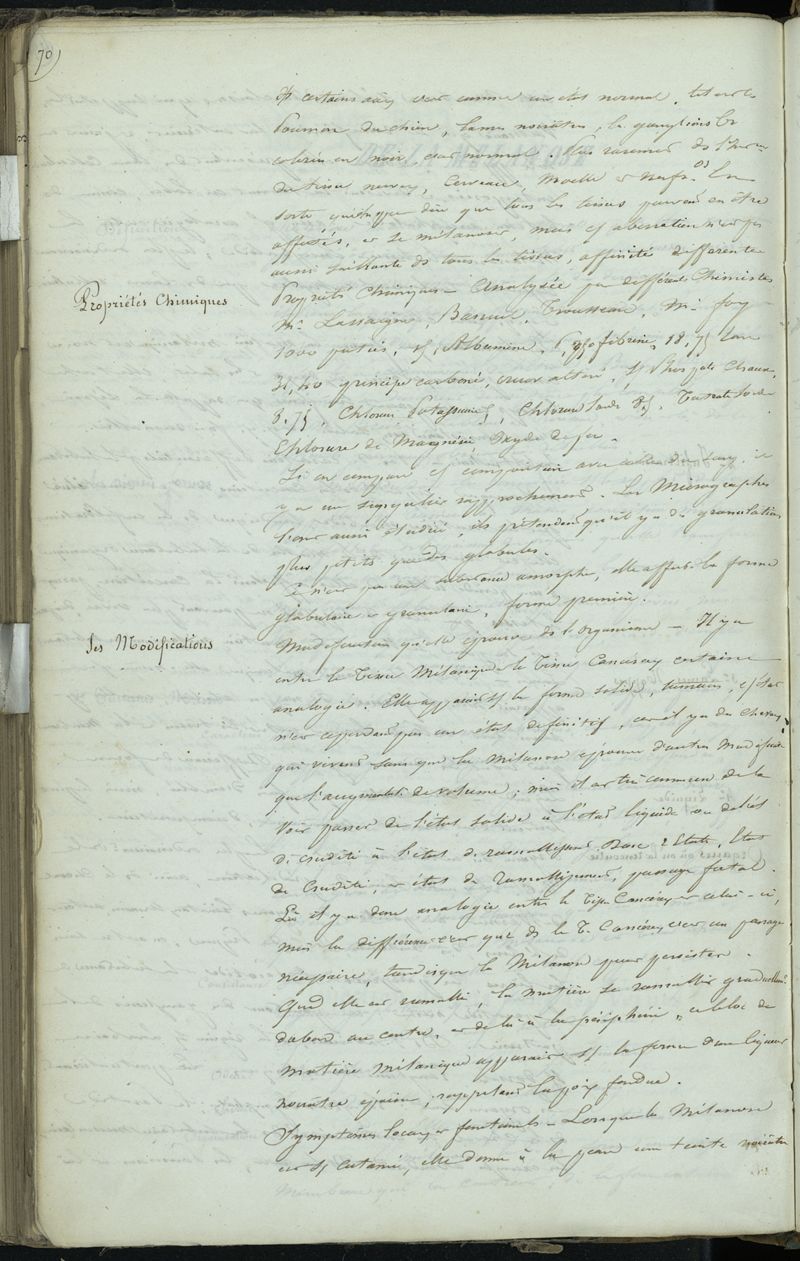 70
& certains cas c'est comme un état normal, tel est le
Poumon du chien, lames noirâtres, les ganglions
colorés en noir, état normal. Plus rarement ds l'
du tissu nerveux, Cerveau, Moelle et Nerfs. En
sorte qu'on peut dire que tous les tissus peuvent en être
affectés, et se mélanoser, mais cette aberration n'est pas
aussi saillante ds tous les tissus, affinité différente
Propriétés Chimiques
Propriétés Chimiques - Analysée par différents Chimistes
Mr. Lassaigne, Barruel, Trousseau, Mr. Foy
1000 parties, Albumine, fibrine, 18,75
31,40 principe carboné, Phosphate Chaux,
8,75, Chlorure Potassium, Chlorure Soude
Chlorure de Magnésie, Oxyde de fer.
Si on compare cette composition avec celle du sang, il
y a un singulier rapprochement. Les Micrographes
l'ont aussi étudiée, ils prétendent qu'il y a des granulations
plus petits que des globules.
Ce n'est pas une substance amorphe, elle affecte la forme
globulaire et granulaire, forme première.
Ses Modifications
Modifications qu'elle éprouve ds l'organisme - Il y a
entre le Tissu Mélanique et le Tissu Cancéreux certaine
analogie. Elle apparaît sous la forme solide, tumeurs, cet état
n'est cependant pas un état définitif, car il y a des chevaux
qui vivent sans que la Mélanose éprouve d'autres Modifications
que l'augmentation de volume; mais il est très commun de la
Voir passer de l'état solide à l'état liquide ou de l'état
de crudité à l'état de ramollissement. Donc 2 États, État
de Crudité, et état de Ramollissement, passage fatal.
Là il y a donc analogie entre le Tissu Cancéreux et celui-ci,
mais la différence c'est que ds le T. Cancéreux c'est un passage
nécessaire, tandis que la Mélanose peut persister.
Quand elle est ramollie, la matière se ramollit graduellement
d'abord au centre, et de là à la périphérie, ce bloc de
matière Mélanique apparaît sous la forme d'une liqueur
noirâtre épaisse, rappelant la poix fondue.
Symptômes locaux et fonctionnels - Lorsque la Mélanose
est sous cutanée, elle donne à la peau une teinte noirâtre